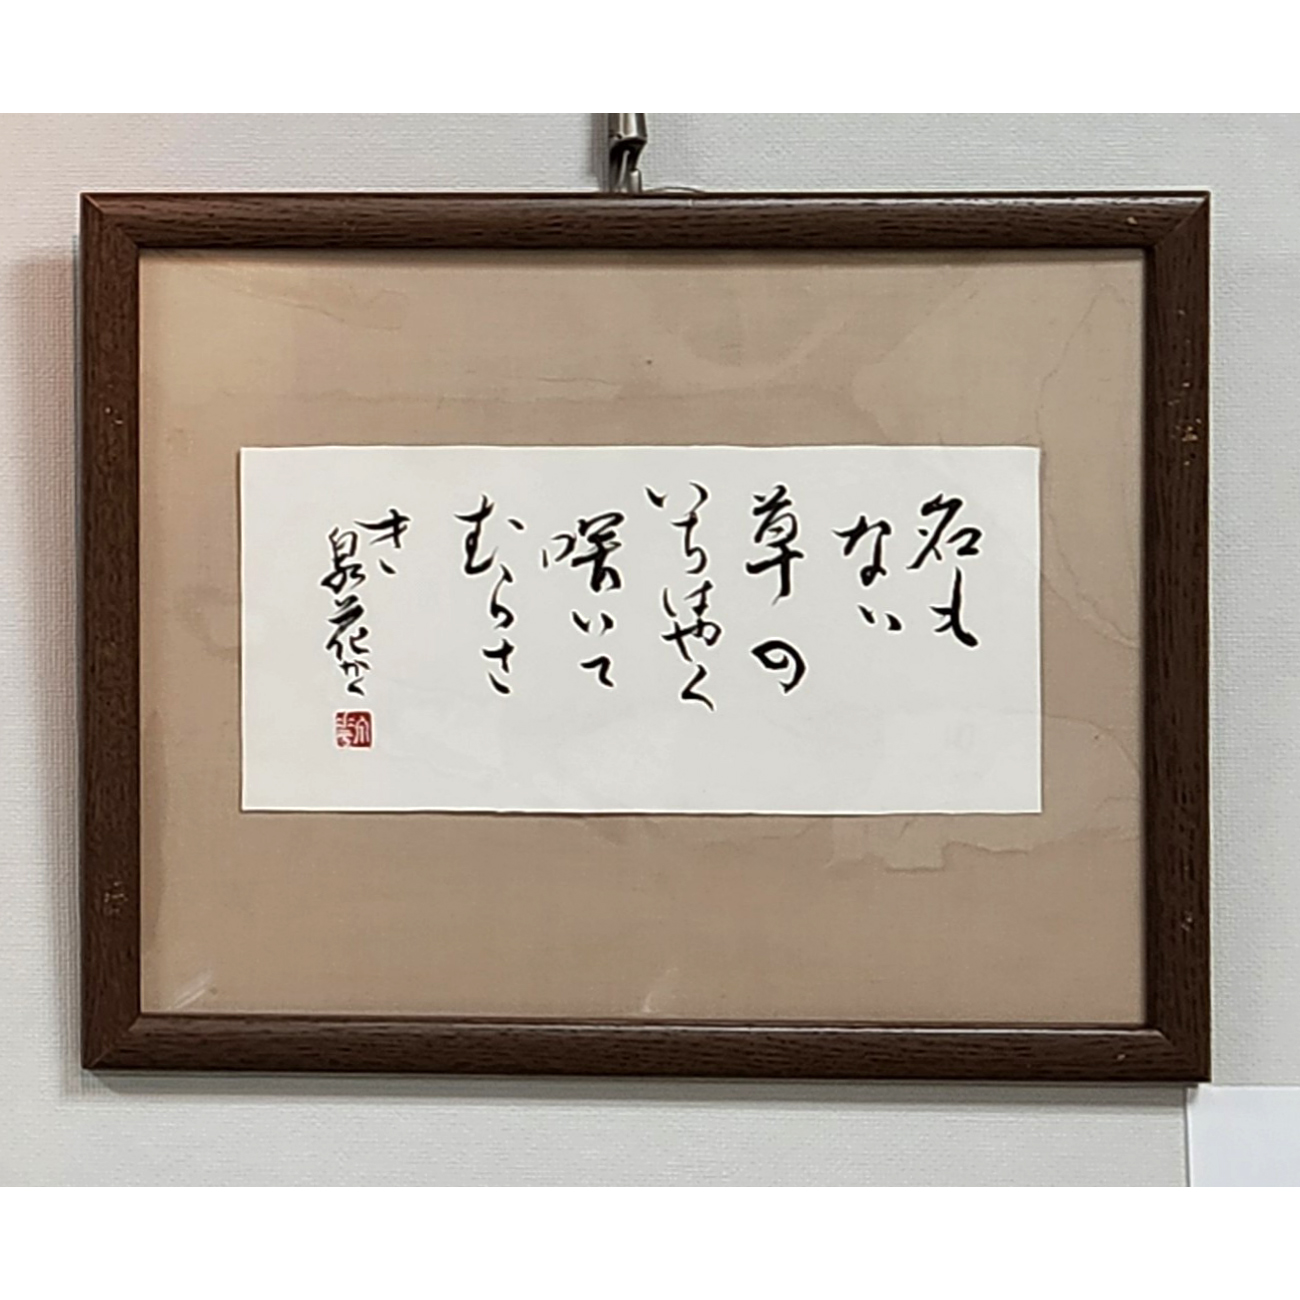 名も
ない
草の
いちはやく
咲いて
むらさ
き
泉花かく